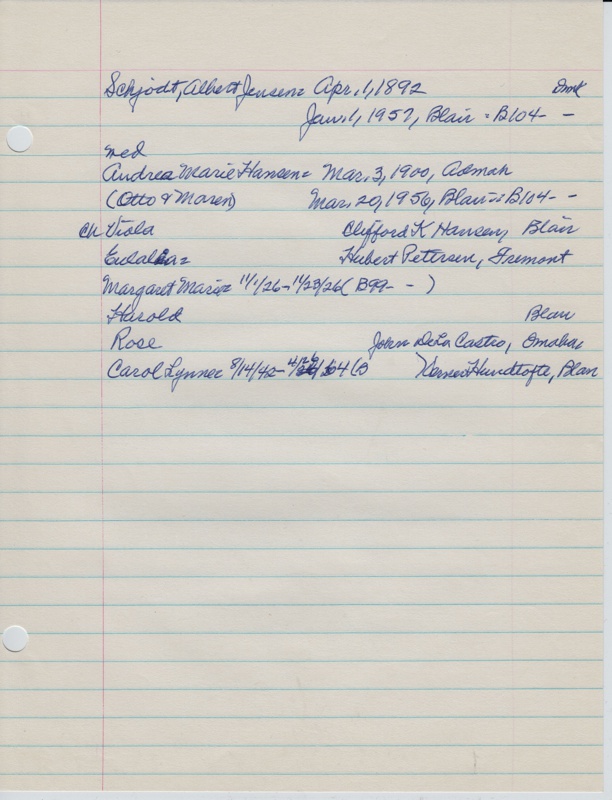 Schjodt, Albert Jensen= Apr. 1, 1892 Dmk
Jan. 1, 1957, Blair = B104- -
med
Andrea Marie Hansen= Mar. 3, 1900, Admah
(Otto & Maren) Mar. 20, 1956, Blair = B104- -
Ch Viola Clifford K Hansen, Blair
Eulalia= Hubert Petersen, Fremont
Margaret Marie= 11/1/26-11/23/26 (B99- - )
Harold Blair
Rose John DeLa Castro, Omaha
Carol Lynnee 8/14/42- 4/26/64 (B Hundtofte, Blair